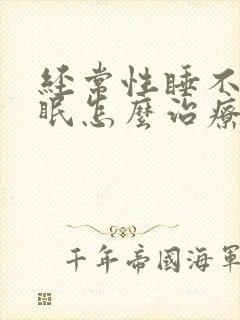 經常性睡不
眠怎麼治療
千年帝國海軍